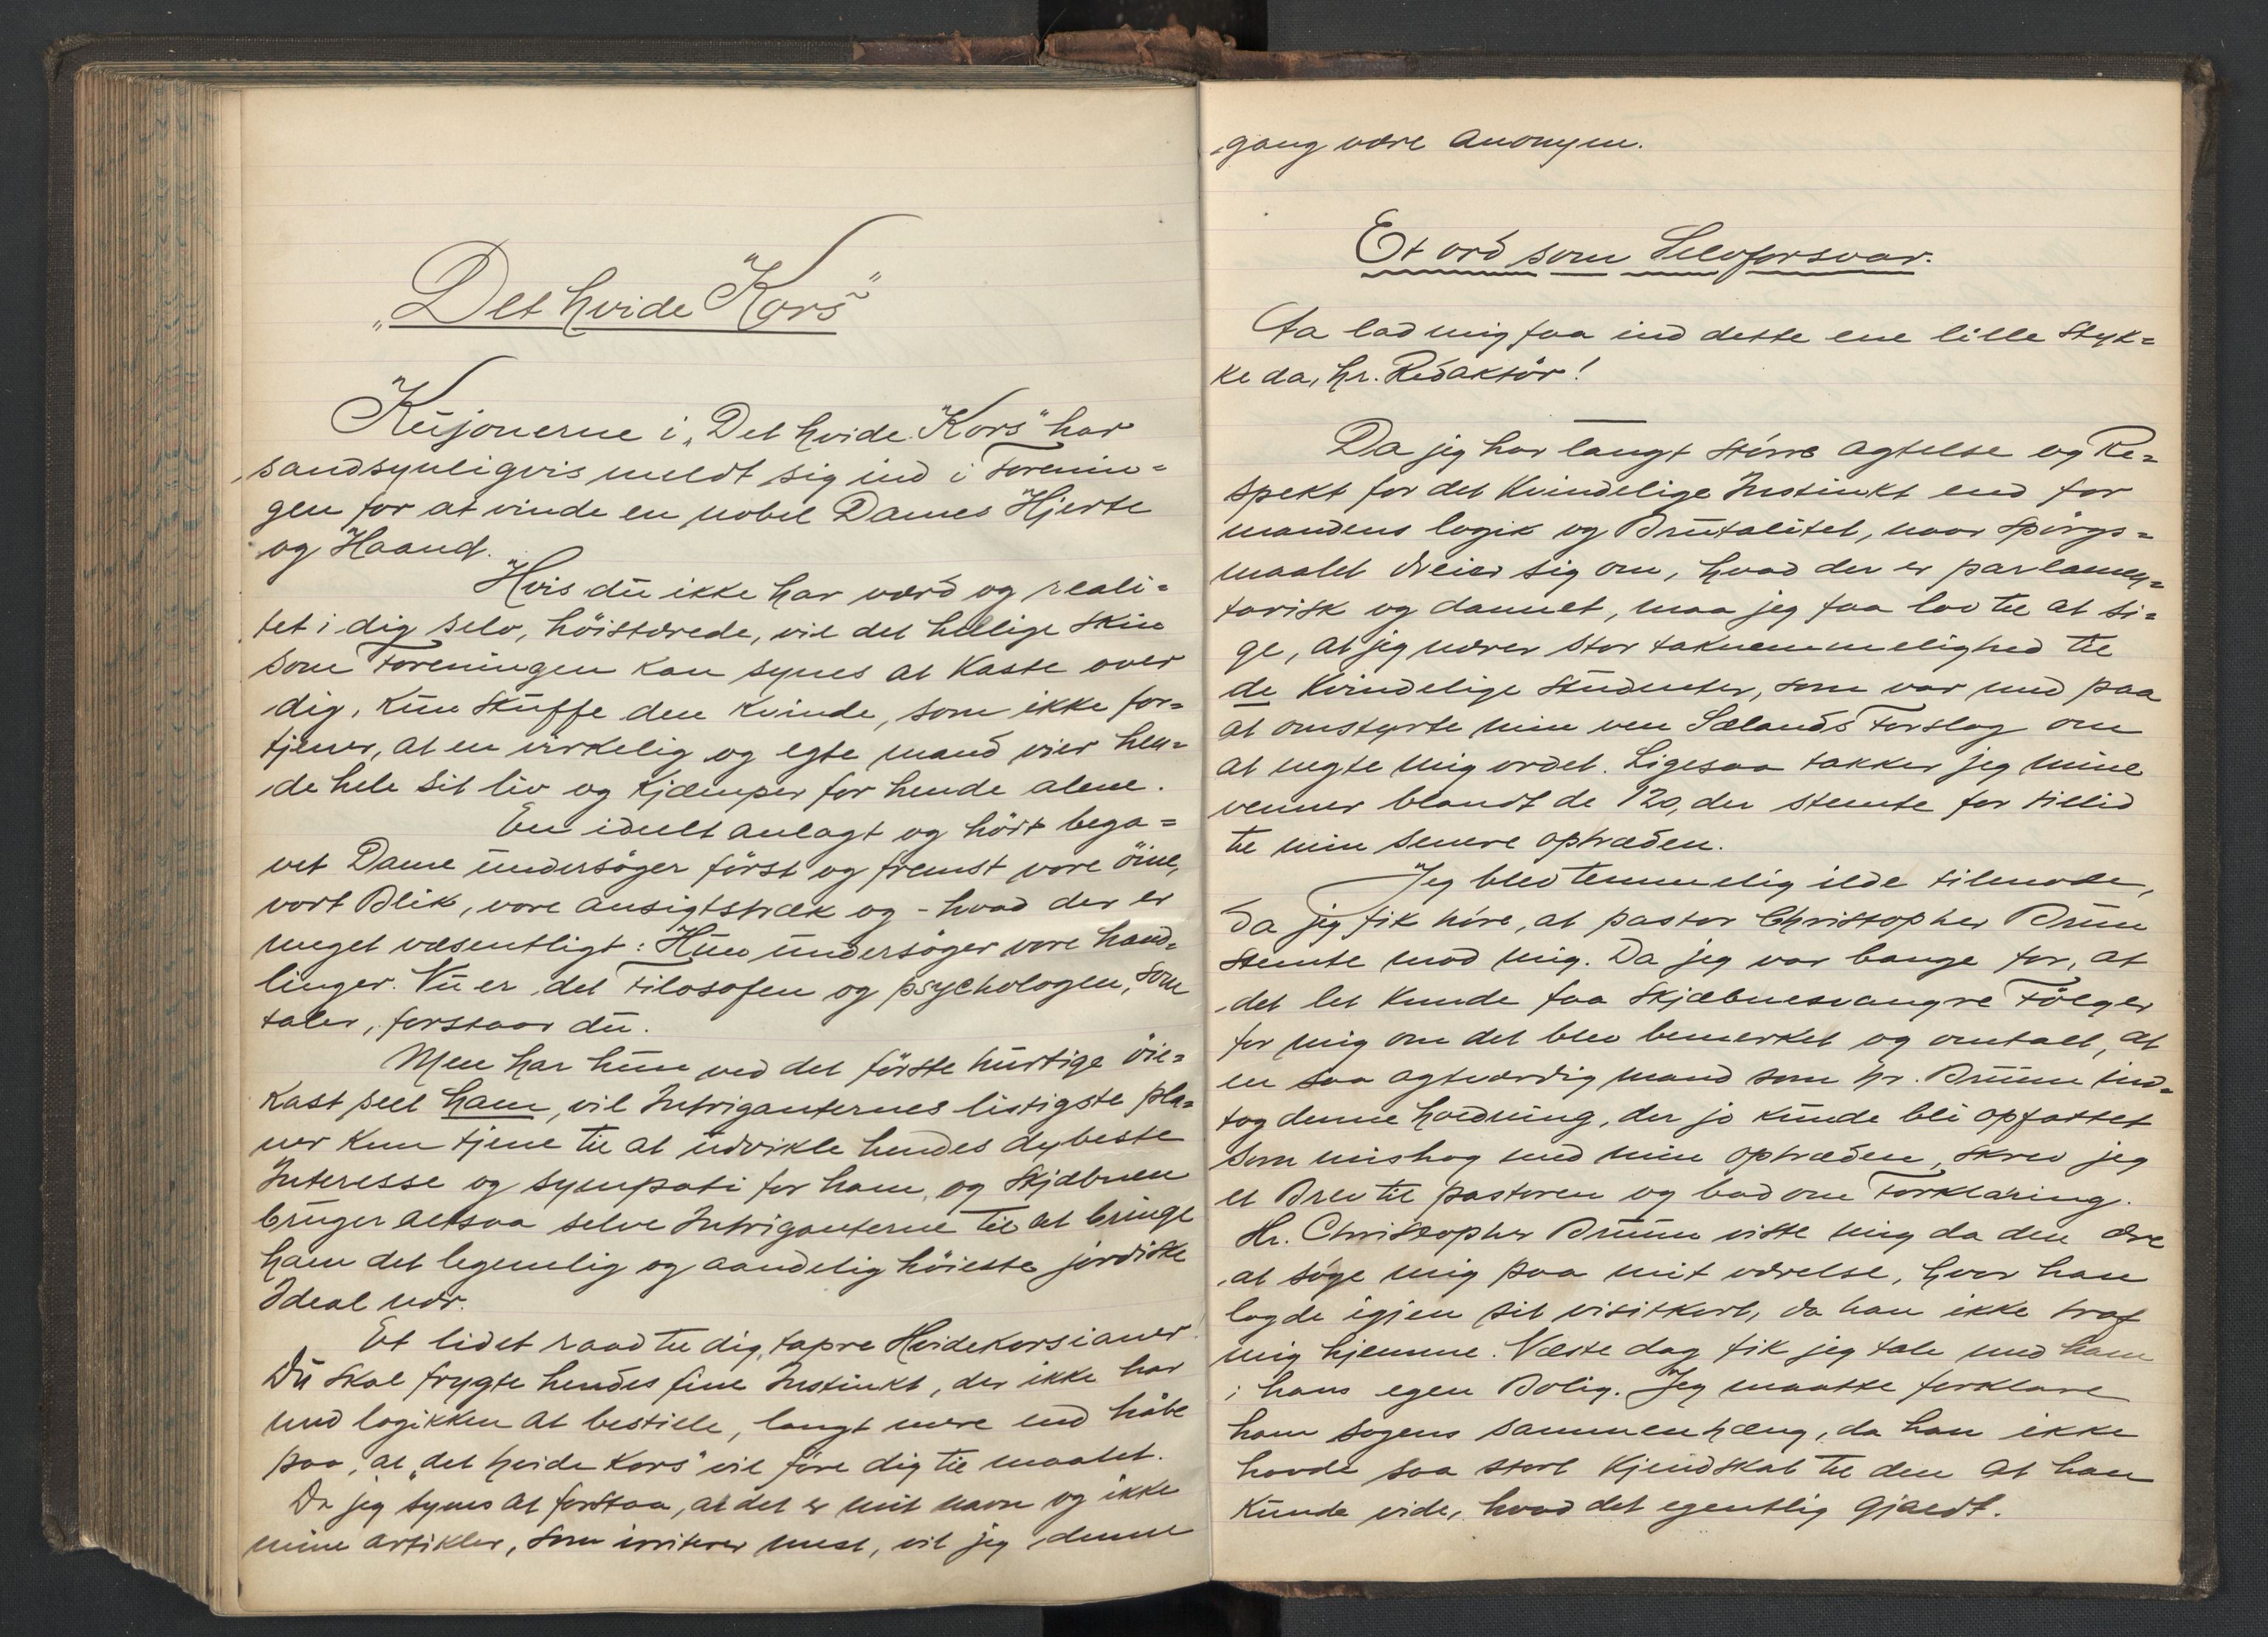 „Det hvide Kors"
Kujonerne i „Det hvide Kors" har
sandsynligvis meldt sig ind i Forenin=
gen for at vinde en nobel Dames Hjerte
og Haand.
Hvis du ikke har værd og reali=
tet i dig selv, høistærede, vil det hellige Skin
som Foreningen kan synes at kaste over
dig, kun skuffe den kvinde, som ikke for=
tjener, at en virkelig og egte mand vier hen=
de hele sit liv og kjæmper for hende alene.
En ideelt anlagt og høit bega=
vet Dame undersøger først og fremst vore øine,
vort Blik, vore ansigtstræk og - hvad der er
meget væsentligt: Hun undersøger vore hand=
linger. Nu er det Filosofen og psychologen, som
taler, forstaar du.
Men har hun ved det første hurtige øie=
kast seet ham, vil Intriganternes listigste pla=
ner kun tjene til at udvikle hendes dybeste
Interesse og sympati for ham, og Skjæbnen
bruger altsaa selve Intriganterne til at bringe
ham det legemlig og aandelig høieste jordiske
Ideal nær.
Et lidet raad til dig, tapre Hvidekorsianer!
Du skal frygte hendes fine Instinkt, der ikke har
med logikken at bestille, langt mere end håbe
paa, at „det hvide Kors" vil føre dig til maalet.
Da jeg synes at forstaa, at det er mit navn og ikke
mine artikler, som irriterer mest, vil jeg denne
gang være anonym.
Et ord som Selvforsvar.
Aa lad mig faa ind dette ene lille Styk=
ke da, hr. Redaktør!
Da jeg har langt større agtelse og Re=
spekt for det kvindelige Instinkt end for
mandens logik og Brutalitet, naar spørgs=
maalet dreier sig om, hvad der er parlamen=
tarisk og dannet, maa jeg faa lov til at si=
ge, at jeg nærer stor taknemmelighed til
de kvindelige Studenter, som var med paa
at omstyrte min ven Sælands Forslag om
at negte mig ordet. Ligesaa takker jeg mine
venner blandt de 120, der stemte for tillid
til min senere optræden.
Jeg blev temmelig ilde tilmode,
da jeg fik høre, at pastor Christopher Bruun
stemte mod mig. Da jeg var bange for, at
det let kunde faa skjæbnesvangre Følger
for mig om det blev bemerket og omtalt, at
en saa agtværdig mand som hr. Bruun ind=
tog denne holdning, der jo kunde bli opfattet
som mishag med min optræden, skrev jeg
et Brev til pastoren og bad om Forklaring.
Hr. Christopher Bruun viste mig da den ære
at søge mig paa mit værelse, hvor han
lagde igjen sit visitkort, da han ikke traf
mig hjemme. Næste dag fik jeg tale med ham
i hans egen Bolig. Jeg maatte forklare
ham sagens sammenhæng, da han ikke
havde saa stort kjendskab til den at han
kunde vide, hvad det egentlig gjaldt.